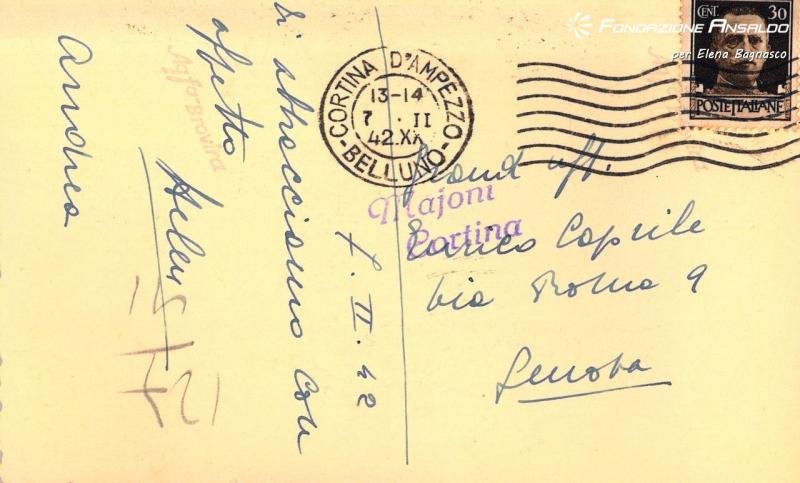 Fondazione Ansaldo
per Elena Bagnasco
CENT. 30
POSTE ITALIANE
CORTINA D'AMPEZZO
13-14
7 · II
42.XX
-BELLUNO-
Majoni
Cortina
Grand uff.
Enrico Caprile
Via Roma 9
Genova
7. II. 42
Vi abbracciamo con
affetto
Andrea
Agfa-Brovira